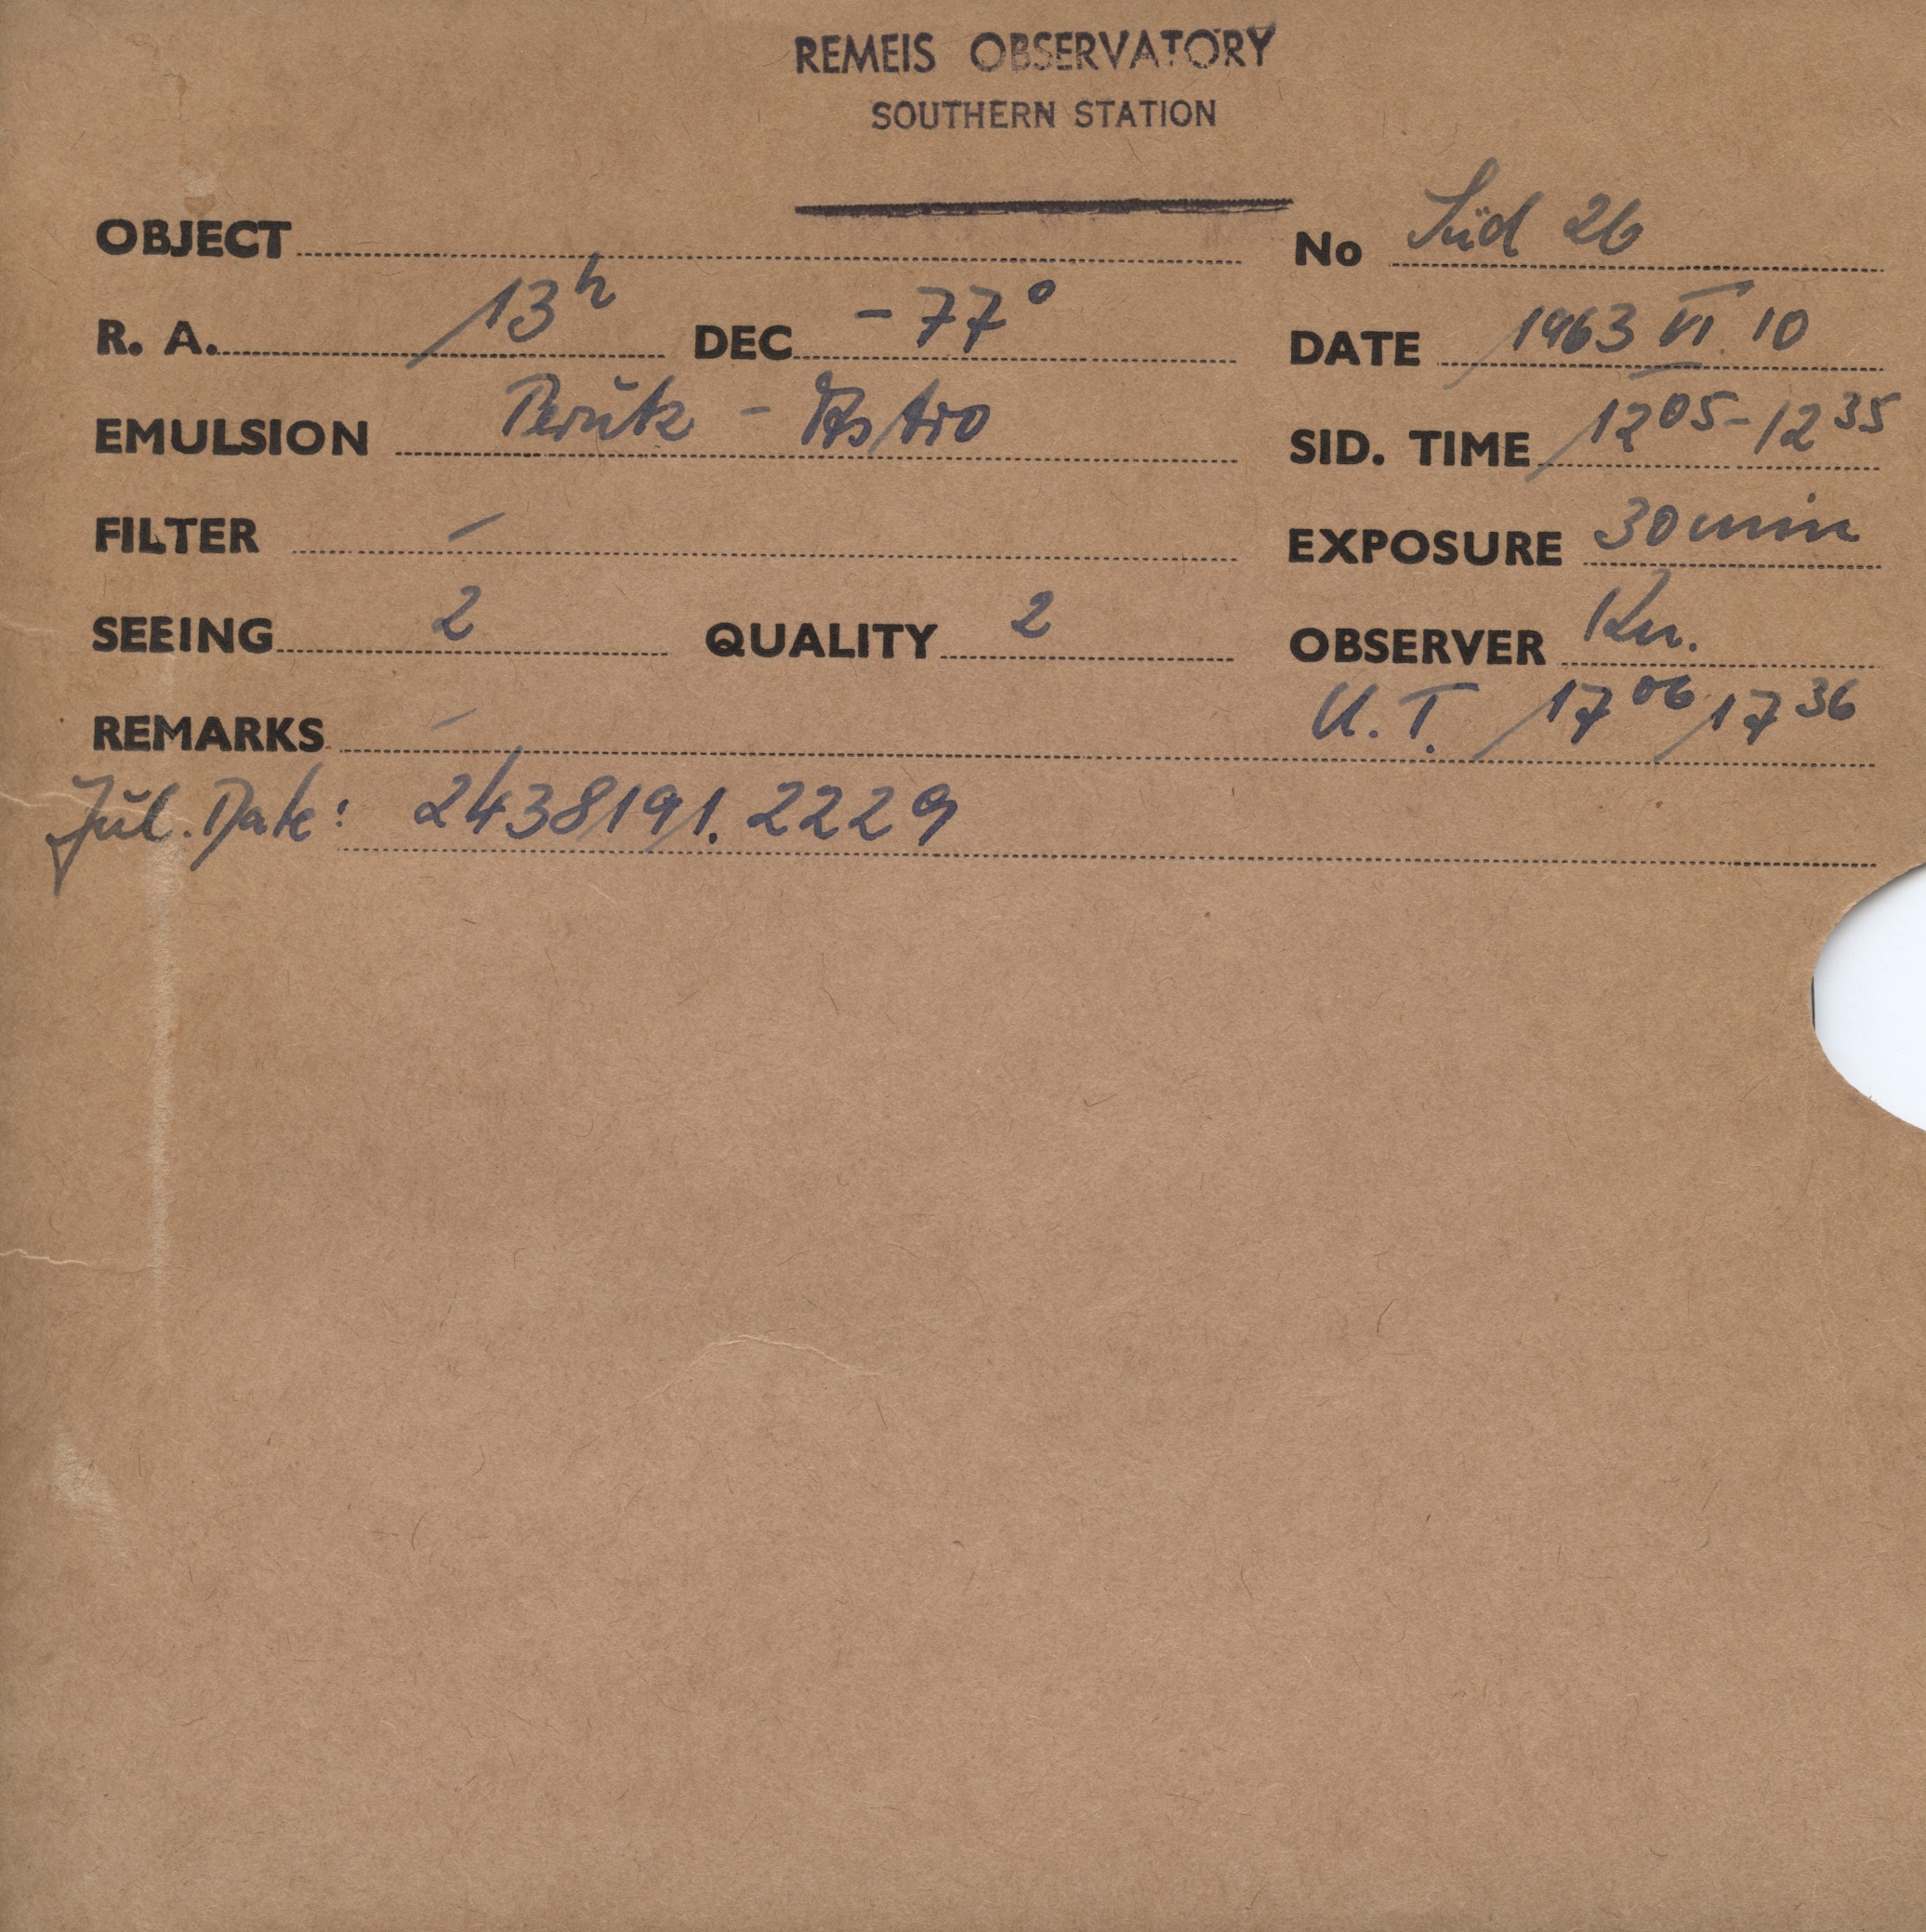 REMEIS OBSERVATORY
SOUTHERN STATION
OBJECT No Süd 26
R. A. 13h DEC -77° DATE 1963 VI. 10
EMULSION Perutz - Astro SID. TIME 12 05 - 12 35
FILTER - EXPOSURE 30 min
SEEING 2 QUALITY 2 OBSERVER Kn.
REMARKS - U.T. 17 06 17 36
Jul. Date: 2438191.2229